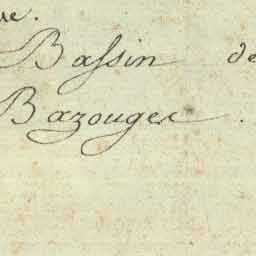 ue.
Bassin de
Bazouges.